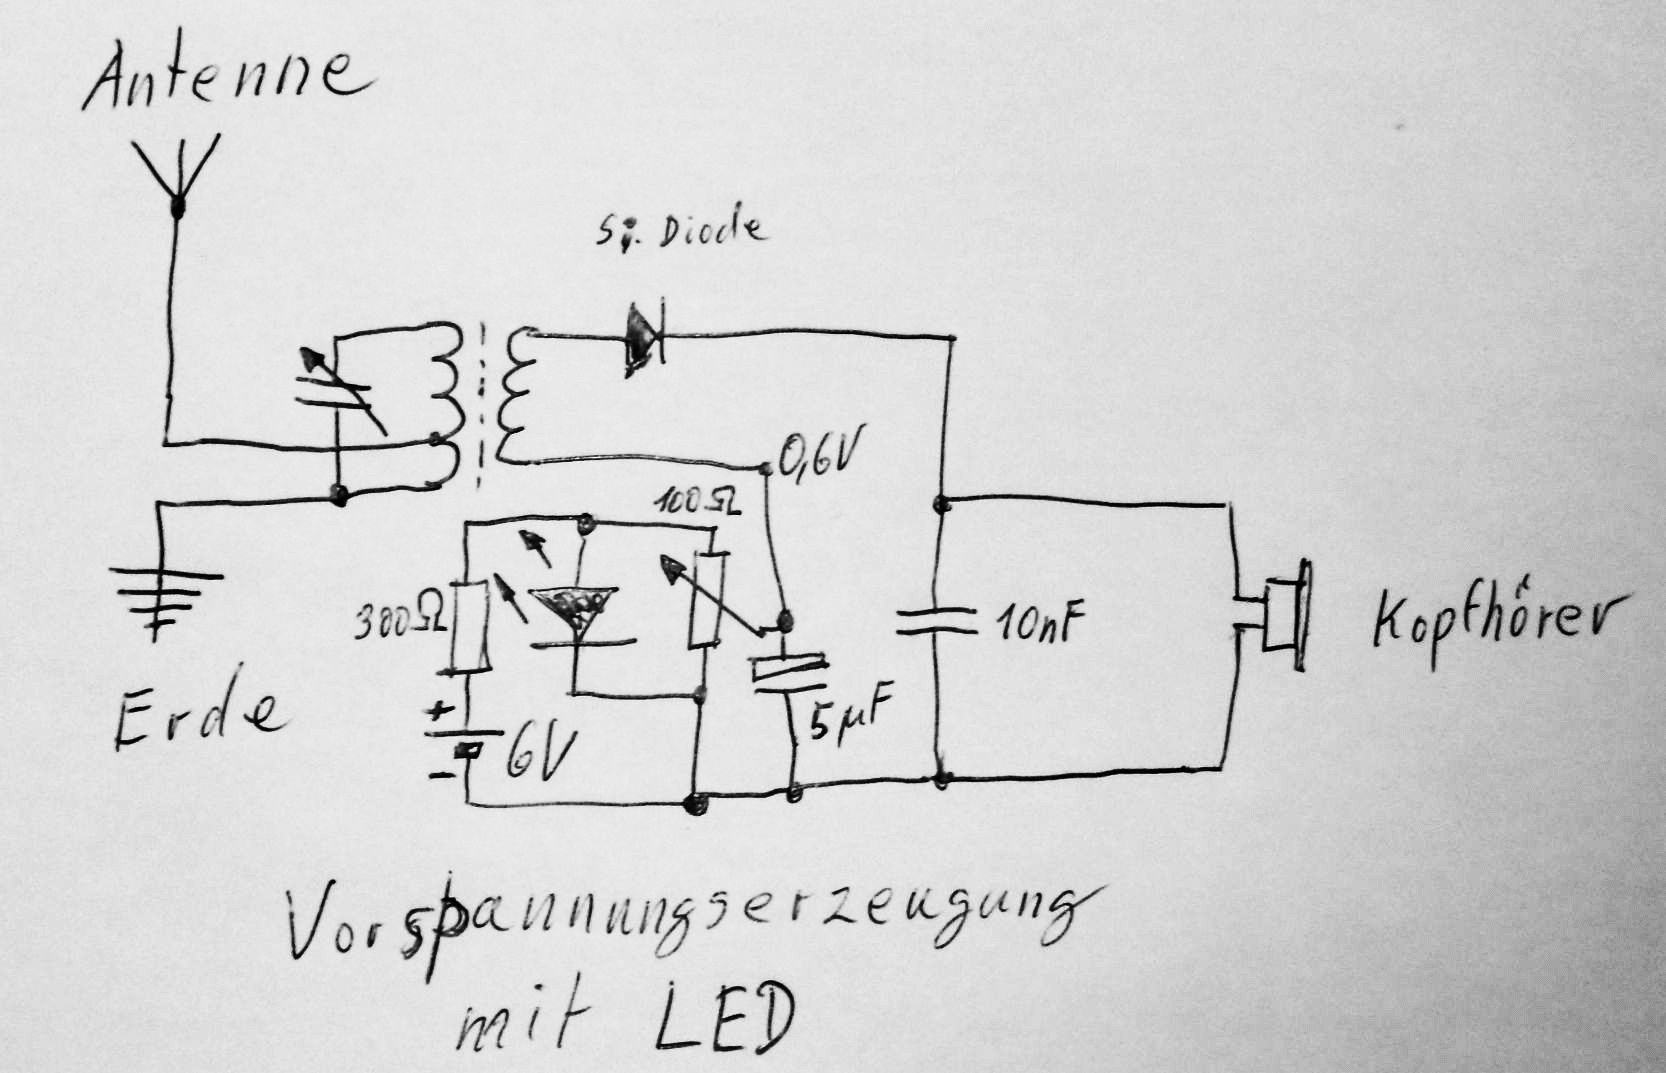 Antenne
Si. Diode
0,6V
100Ω
300Ω
10nF
Kopfhörer
Erde
+
5µF
6V
-
Vorspannungserzeugung
mit LED